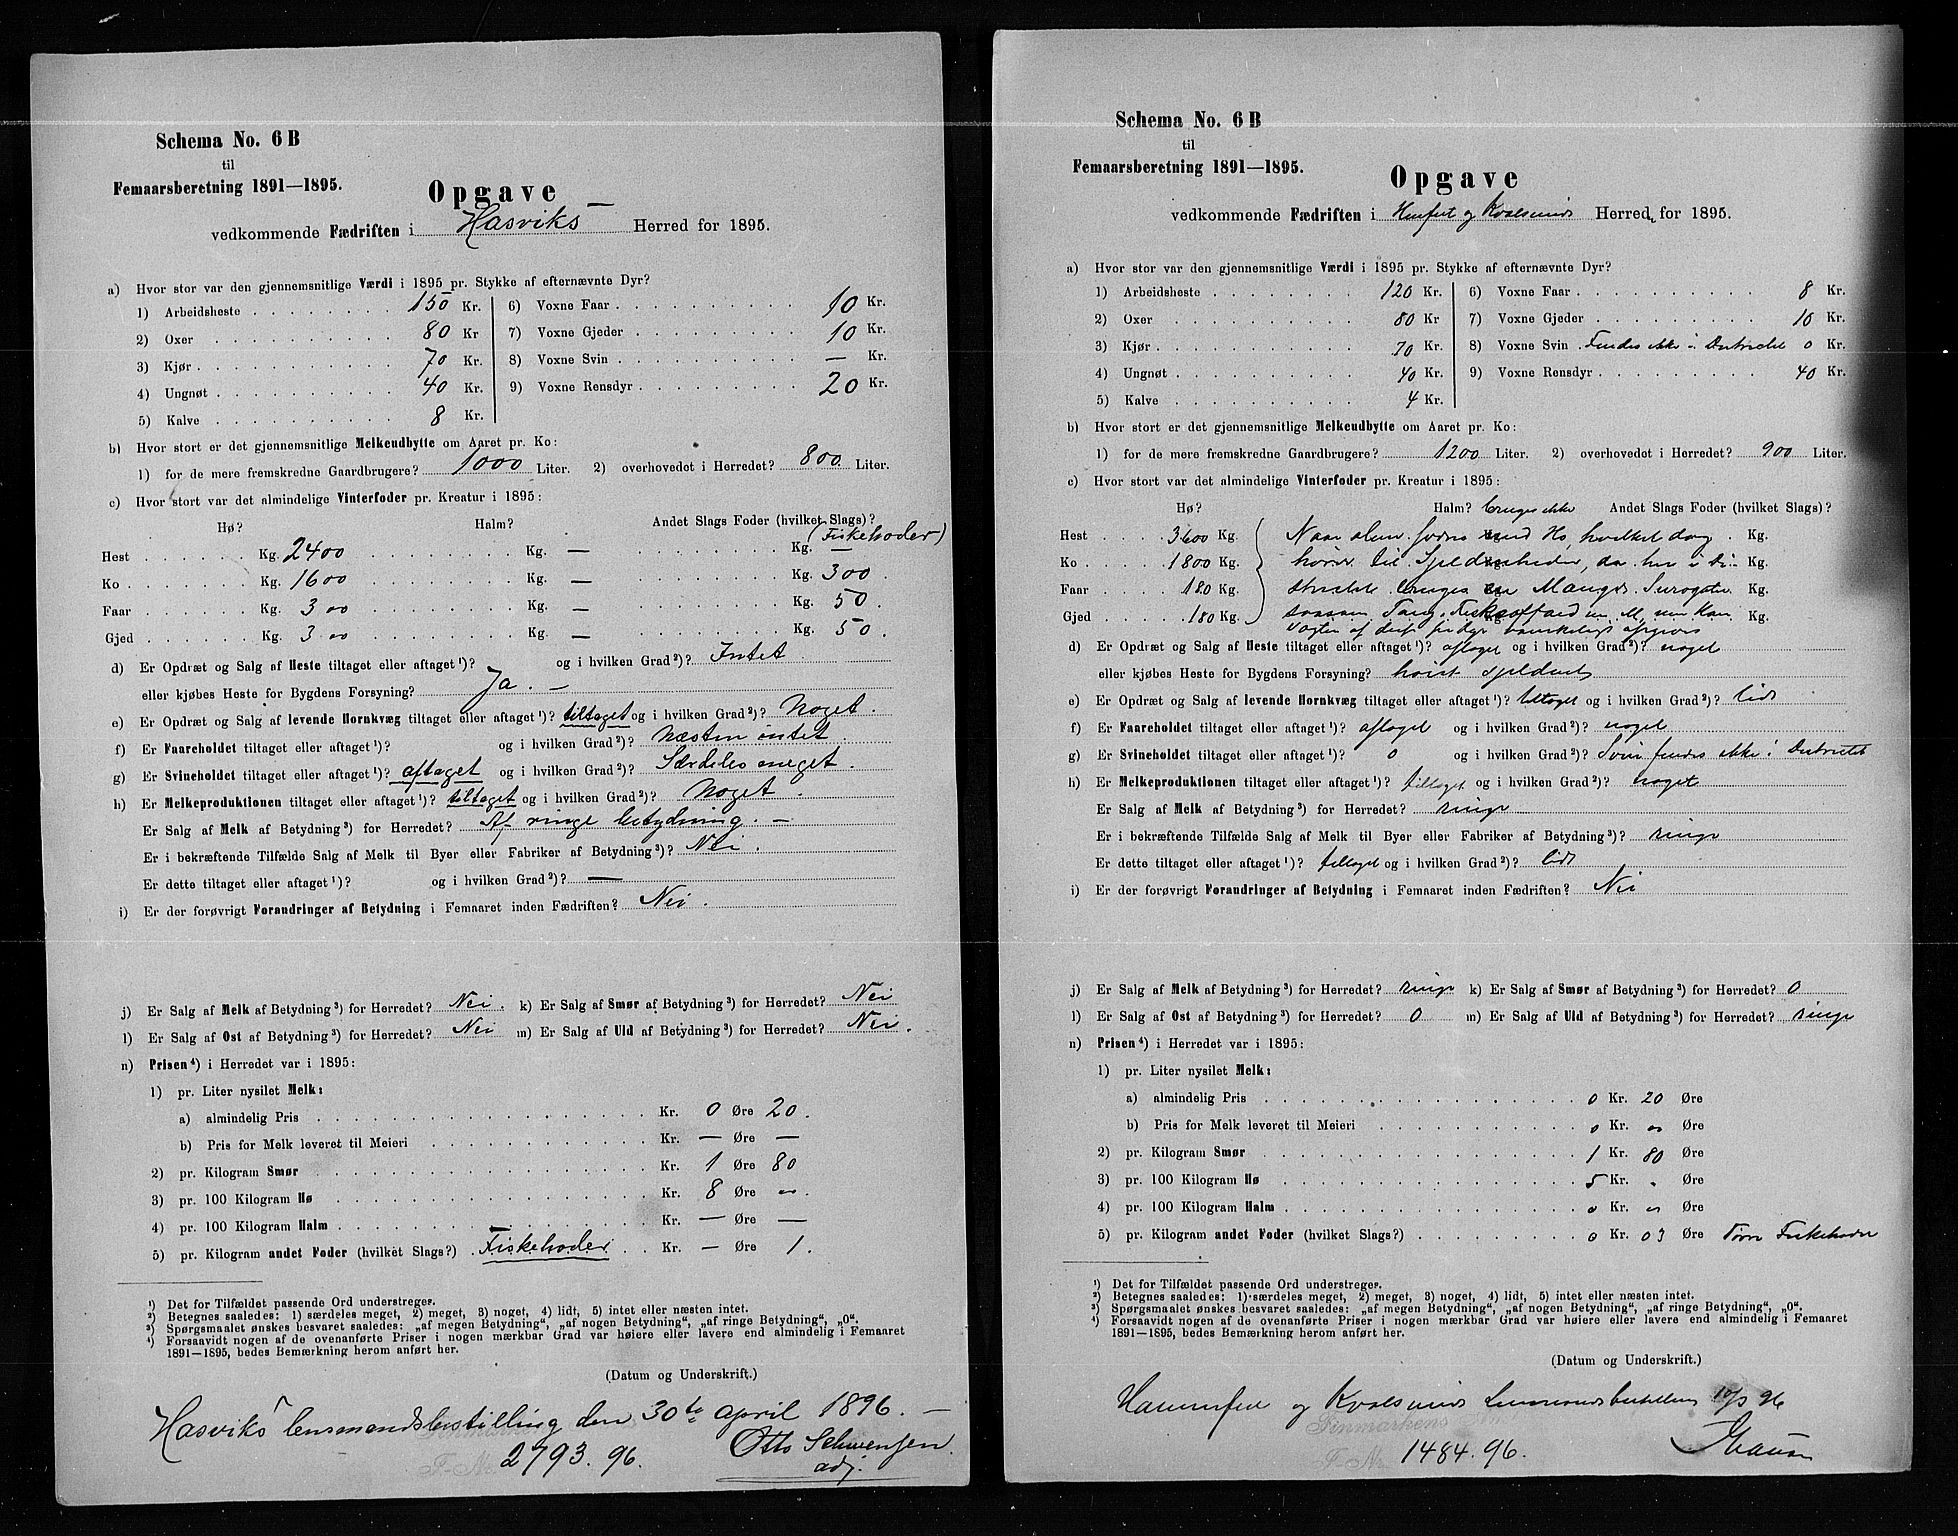 Schema No. 6 B
til
Femaarsberetning 1891—1895.
Opgave
vedkommende Fædriften i Hasviks Herred for 1895.
a) Hvor stor var den gjennemsnitlige Værdi i 1895 pr. Stykke af efternævnte Dyr?
1) Arbeidsheste 150 Kr. 6) Voxne Faar 10 Kr.
2) Oxer 80 Kr 7) Voxne Gjeder 10 Kr.
3) Kjør 70 Kr. 8) Voxne Svin — Kr.
4) Ungnøt 40 Kr. 9) Voxne Rensdyr 20 Kr.
5) Kalve 8 Kr.
b) Hvor stort er det gjennemsnitlige Melkeudbytte om Aaret pr. Ko:
1) for de mere fremskredne Gaardbrugere? 1000 Liter. 2) overhovedet i Herredet? 800 Liter.
c) Hvor stort var det almindelige Vinterfoder pr. Kreatur i 1895:
Hø? Halm? Andet Slags Foder (hvilket Slags)?
(Fiskehoder)
Hest Kg. 2400 Kg. — Kg. —
Ko Kg. 1600 Kg. — Kg. 300
Faar Kg. 300 Kg. — Kg. 50
Gjed Kg. 300 Kg. — Kg. 50
d) Er Opdræt og Salg af Heste tiltaget eller aftaget¹)? og i hvilken Grad²)? Intet
eller kjøbes Heste for Bygdens Forsyning? Ja. —
e) Er Opdræt og Salg af levende Hornkvæg tiltaget eller aftaget¹)? tiltaget og i hvilken Grad²)? Noget.
f) Er Faareholdet tiltaget eller aftaget¹)? og i hvilken Grad²)? Næsten intet.
g) Er Svineholdet tiltaget eller aftaget¹)? aftaget og i hvilken Grad²)? Særdeles meget.
h) Er Melkeproduktionen tiltaget eller aftaget¹)? tiltaget og i hvilken Grad²)? Noget.
Er Salg af Melk af Betydning³) for Herredet? Af ringe betydning. —
Er i bekræftende Tilfælde Salg af Melk til Byer eller Fabriker af Betydning³)? Nei.
Er dette tiltaget eller aftaget¹)? og i hvilken Grad²)? —
i) Er der forøvrigt Forandringer af Betydning i Femaaret inden Fædriften? Nei.
j) Er Salg af Melk af Betydning³) for Herredet? Nei. k) Er Salg af Smør af Betydning³) for Herredet? Nei
l) Er Salg af Ost af Betydning³) for Herredet? Nei m) Er Salg af Uld af Betydning³) for Herredet? Nei.
n) Prisen⁴) i Herredet var i 1895:
1) pr. Liter nysilet Melk:
a) almindelig Pris Kr. 0 Øre 20.
b) Pris for Melk leveret til Meieri Kr. — Øre —
2) pr. Kilogram Smør Kr. 1 Øre 80
3) pr. 100 Kilogram Hø Kr. 8 Øre
4) pr. 100 Kilogram Halm Kr. — Øre —
5) pr. Kilogram andet Foder (hvilket Slags?) Fiskehoder Kr. — Øre 1.
¹) Det for Tilfældet passende Ord understreges.
²) Betegnes saaledes: 1) særdeles meget, 2) meget, 3) noget, 4) lidt, 5) intet eller næsten intet.
³) Spørgsmaalet ønskes besvaret saaledes: „af megen Betydning“, „af nogen Betydning“, „af ringe Betydning“, „0“.
⁴) Forsaavidt nogen af de ovenanførte Priser i nogen mærkbar Grad var høiere eller lavere end almindelig i Femaaret
1891—1895, bedes Bemærkning herom anført her.
(Datum og Underskrift.)
Hasviks lensmandsbestilling den 30te april 1896. —
2793.96. Otto Schwensen
adj.
Schema No. 6 B
til
Femaarsberetning 1891—1895.
Opgave
vedkommende Fædriften i Hmfest og Kvalsunds Herred for 1895.
a) Hvor stor var den gjennemsnitlige Værdi i 1895 pr. Stykke af efternævnte Dyr?
1) Arbeidsheste 120 Kr. 6) Voxne Faar 8 Kr.
2) Oxer 80 Kr 7) Voxne Gjeder 10 Kr.
3) Kjør 70 Kr. 8) Voxne Svin Findes ikke i Distriktet 0 Kr.
4) Ungnøt 40 Kr. 9) Voxne Rensdyr 40 Kr.
5) Kalve 4 Kr.
b) Hvor stort er det gjennemsnitlige Melkeudbytte om Aaret pr. Ko:
1) for de mere fremskredne Gaardbrugere? 1200 Liter. 2) overhovedet i Herredet? 900 Liter.
c) Hvor stort var det almindelige Vinterfoder pr. Kreatur i 1895:
Hø? Halm? bruges ikke Andet Slags Foder (hvilket Slags)?
Hest 3600 Kg. Naar alene fodres med Hø, hvilket dog Kg.
Ko 1800 Kg. hører til Sjeldenheder, da her i Di- Kg.
Faar 180 Kg. striktet bruges en Mængde Surogater Kg.
Gjed 180 Kg. saasom Tang, Fiskeaffald Kg.
d) Er Opdræt og Salg af Heste tiltaget eller aftaget¹)? aftaget og i hvilken Grad²)? noget
eller kjøbes Heste for Bygdens Forsyning? høist sjeldent
e) Er Opdræt og Salg af levende Hornkvæg tiltaget eller aftaget¹)? tiltaget og i hvilken Grad²)? lidt
f) Er Faareholdet tiltaget eller aftaget¹)? aftaget og i hvilken Grad²)? noget
g) Er Svineholdet tiltaget eller aftaget¹)? 0 og i hvilken Grad²)? Svin findes ikke i Distriktet
h) Er Melkeproduktionen tiltaget eller aftaget¹)? tiltaget og i hvilken Grad²)? noget
Er Salg af Melk af Betydning³) for Herredet? ringe
Er i bekræftende Tilfælde Salg af Melk til Byer eller Fabriker af Betydning³)? ringe
Er dette tiltaget eller aftaget¹)? tiltaget og i hvilken Grad²)? lidt
i) Er der forøvrigt Forandringer af Betydning i Femaaret inden Fædriften? Nei
j) Er Salg af Melk af Betydning³) for Herredet? ringe k) Er Salg af Smør af Betydning³) for Herredet? 0
l) Er Salg af Ost af Betydning³) for Herredet? 0 m) Er Salg af Uld af Betydning³) for Herredet? ringe
n) Prisen⁴) i Herredet var i 1895:
1) pr. Liter nysilet Melk:
a) almindelig Pris 0 Kr. 20 Øre
b) Pris for Melk leveret til Meieri 0 Kr. Øre
2) pr. Kilogram Smør 1 Kr. 80 Øre
3) pr. 100 Kilogram Hø 5 Kr. Øre
4) pr. 100 Kilogram Halm 0 Kr. Øre
5) pr. Kilogram andet Foder (hvilket Slags?) 0 Kr. 03 Øre Tørre Fiskehoder
¹) Det for Tilfældet passende Ord understreges.
²) Betegnes saaledes: 1) særdeles meget, 2) meget, 3) noget, 4) lidt, 5) intet eller næsten intet.
³) Spørgsmaalet ønskes besvaret saaledes: „af megen Betydning“, „af nogen Betydning“, „af ringe Betydning“, „0“.
⁴) Forsaavidt nogen af de ovenanførte Priser i nogen mærkbar Grad var høiere eller lavere end almindelig i Femaaret
1891—1895, bedes Bemærkning herom anført her.
(Datum og Underskrift.)
Hammerfest og Kvalsunds Lensmandsbestilling 10/3 96
Finmarkens
1484.96.